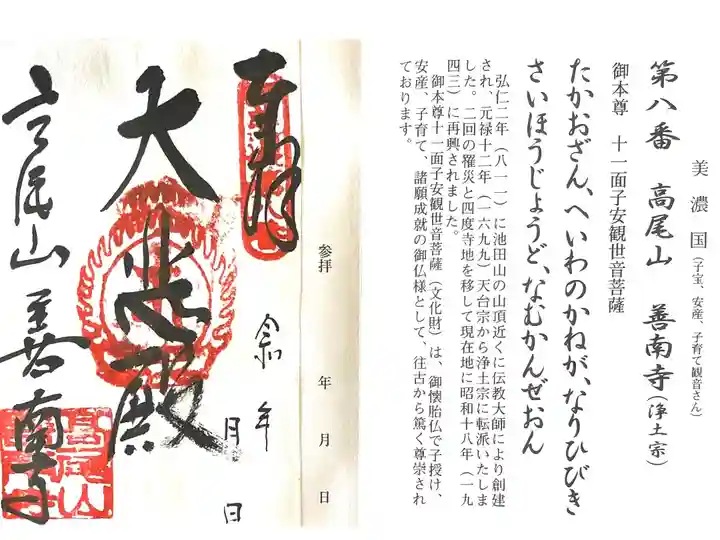 美濃国（子宝、安産、子育て観音さん）
第八番　高尾山　善南寺（浄土宗）
御本尊　十一面子安観世音菩薩
たかおざん、へいわのかねが、なりひびき
さいほうじょうど、なむかんぜおん
弘仁二年（八一一）に池田山の山頂近くに伝教大師により創建
され、元禄十二年（一六九九）天台宗から浄土宗に転派いたしま
した。二回の罹災と四度寺地を移して現在地に昭和十八年（一九
四三）に再興されました。
御本尊十一面子安観世音菩薩（文化財）は、御懐胎仏で子授け、
安産、子育て、諸願成就の御仏様として、往古から篤く尊崇され
ております。
参拝　年　月　日
奉拝
令和　年　月　日
大悲殿
高尾山　善南寺